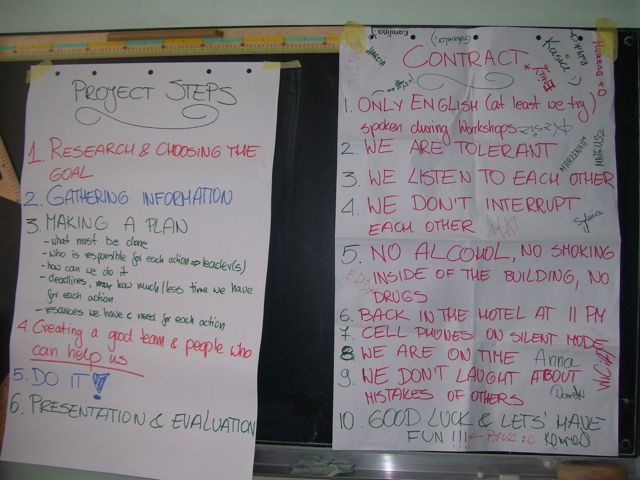 PROJECT STEPS
1. RESEARCH & CHOOSING THE
GOAL
2. GATHERING INFORMATION
3. MAKING A PLAN
- what must be done
- who is responsible for each action => leader(s)
- how can we do it
- deadlines, how much/less time we have
for each action
- resources we have & need for each action
4. Creating a good team & people who
can help us
5. DO IT!
6. PRESENTATION & EVALUATION
Karolina
Gabriela
Kasia
CONTRACT
1. ONLY ENGLISH (at least we try)
spoken during workshops
MARZENA
MATEUSZ
2. WE ARE TOLERANT
3. WE LISTEN TO EACH OTHER
4. WE DON'T INTERRUPT
EACH OTHER
Sylwia
5. NO ALCOHOL, NO SMOKING
INSIDE OF THE BUILDING, NO
DRUGS
6. BACK IN THE HOTEL AT 11 PM
7. CELL PHONES ON SILENT MODE
8 WE ARE ON TIME Anna
9. WE DON'T LAUGHT ABOUT
MISTAKES OF OTHERS
10. GOOD LUCK & LETS' HAVE
FUN !!! ← PAUL :D Konrad